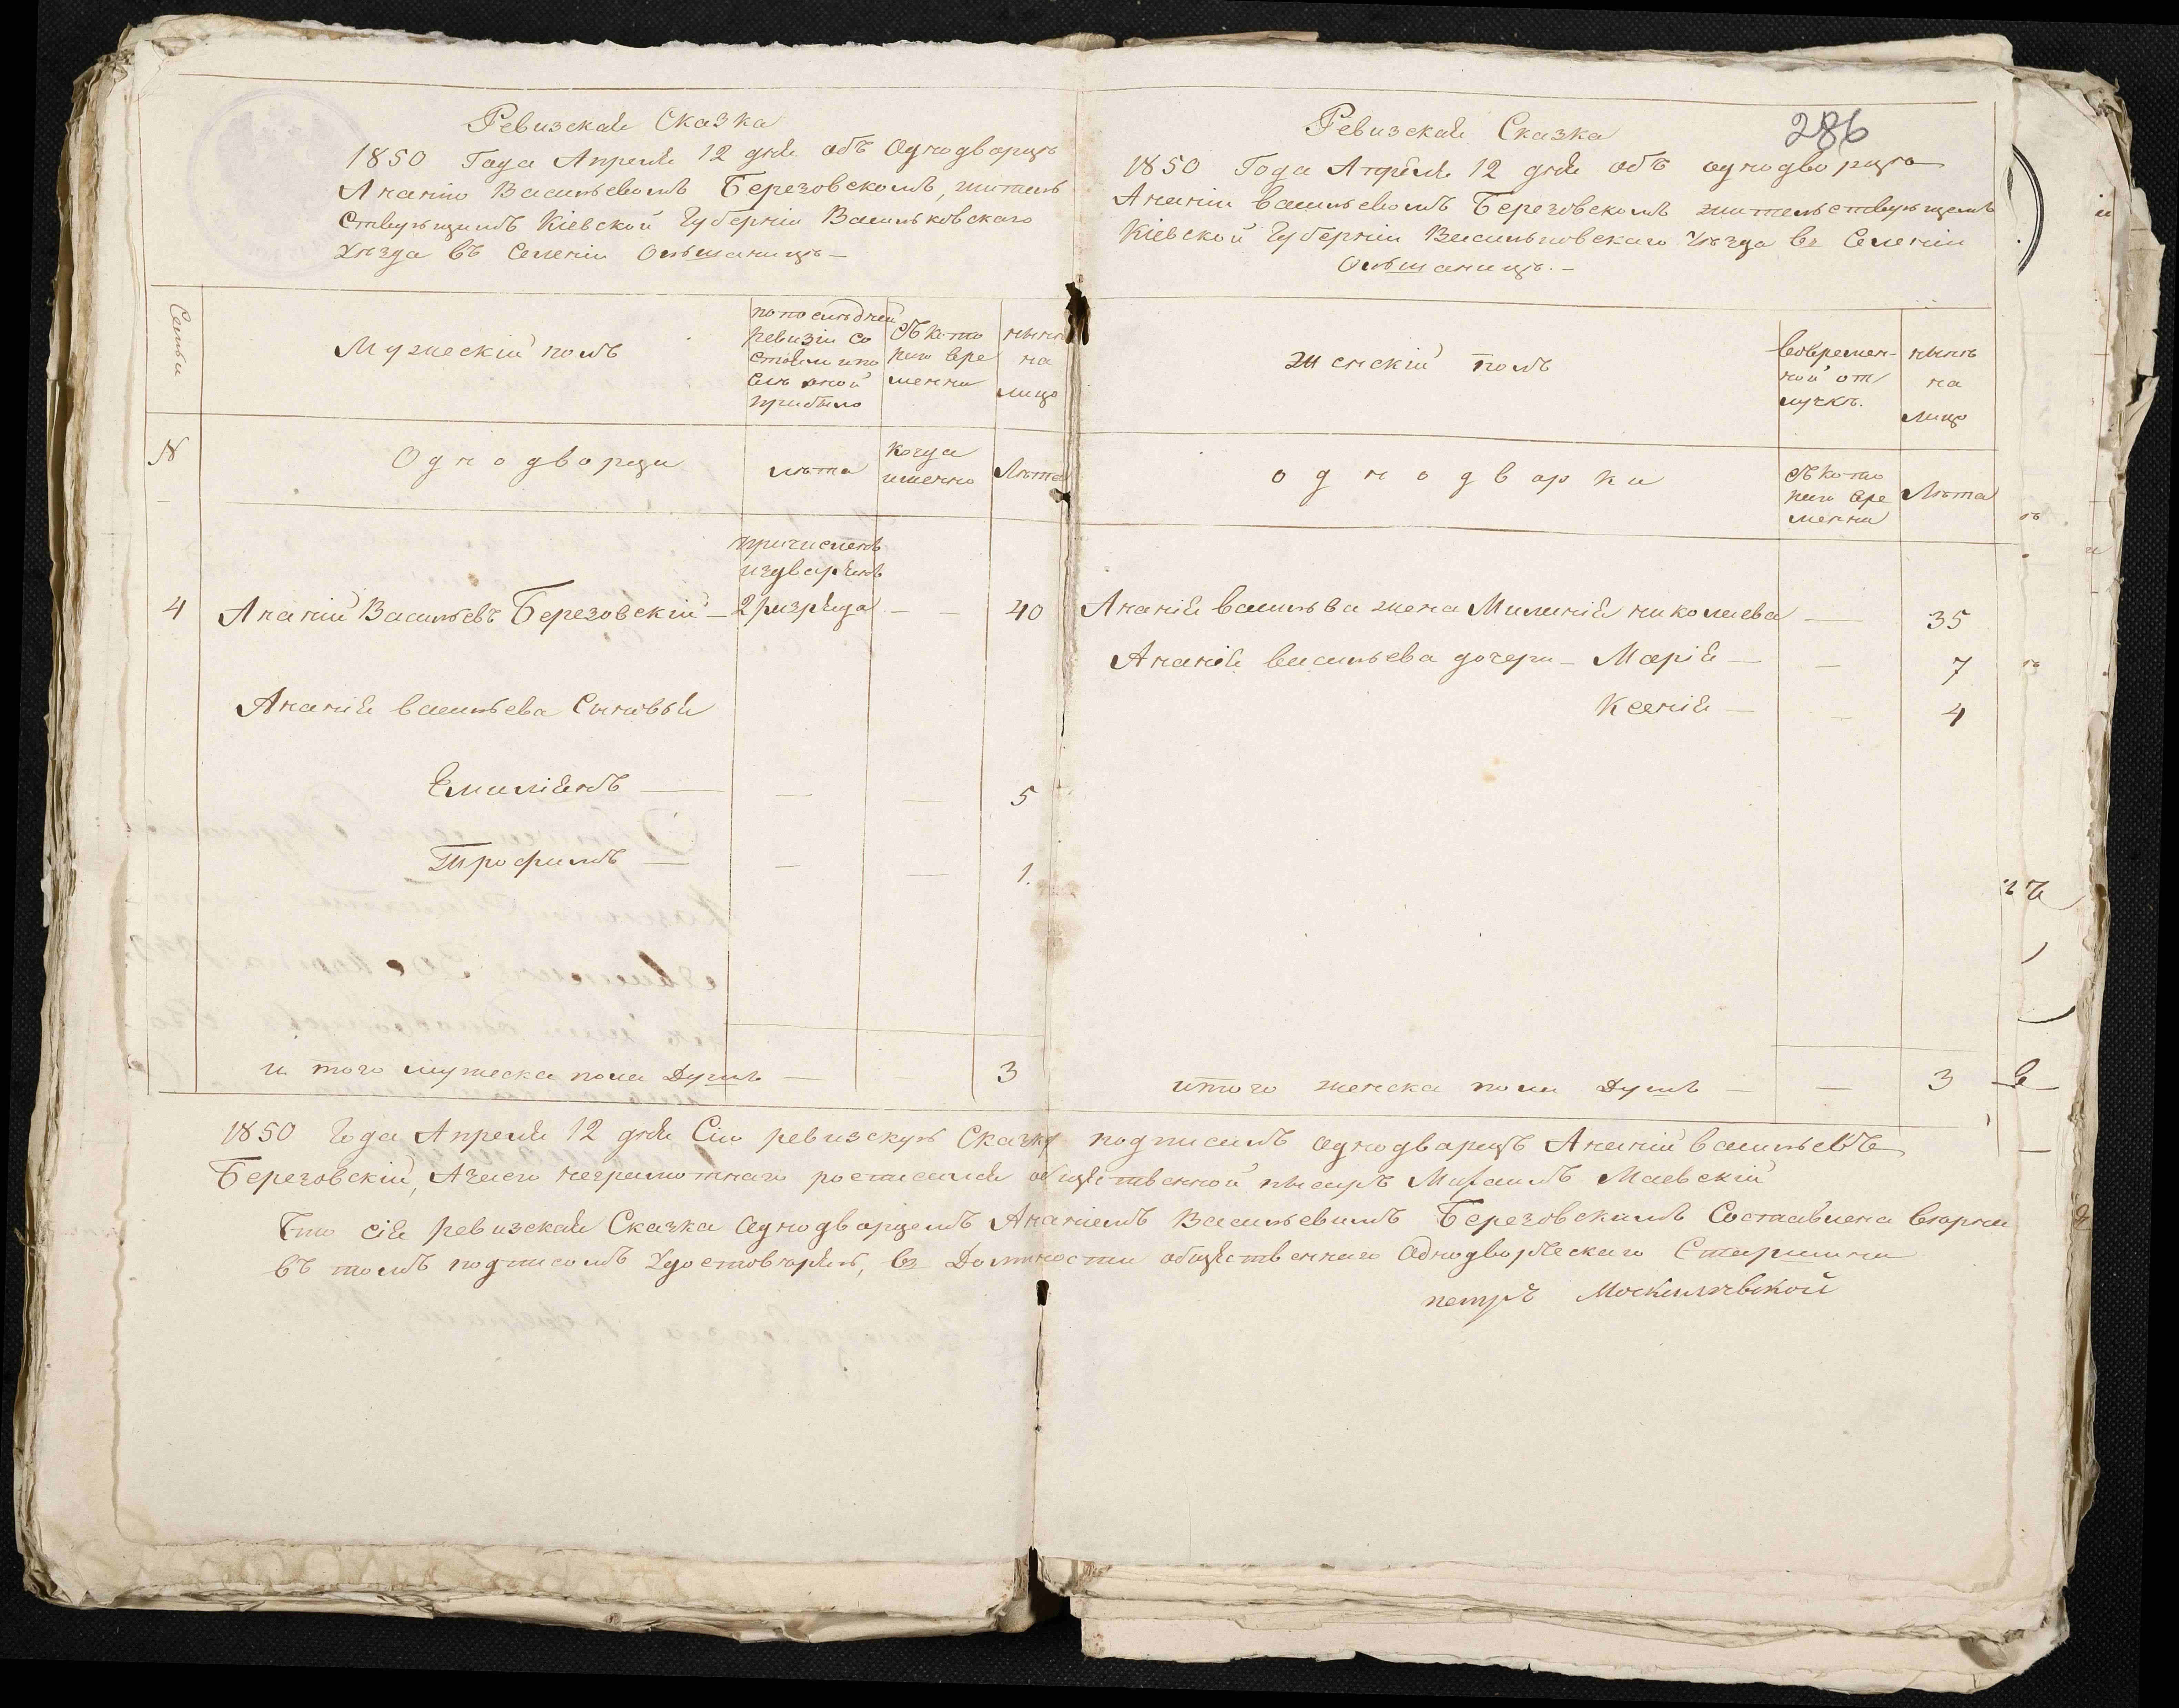 Ревизская Сказка
1850 Года Апреля 12 дня объ Однодворцѣ
Ананію Васильевомъ Березовскомъ, житель
ствующимъ Кіевской Губерніи Васильковскаго
Уѣзда въ Селеніи Ольшаницѣ —
Семьи
Мужескій полъ
по последней ревизіи со стояли и по слѣ оной прибыло
Съ кото раго вре менни
нынѣ на лицо
№
Однодворци
лѣта
Когда именно
Лѣта
причисленъ
издворянъ
4 Ананій Васильевъ Березовскій — 2 разряда — — 40
Ананія васильева Сыновья
Емиліянъ — — — 5
Трофимъ — — — 1.
и того мужеска пола Душъ — — 3
286
Ревизская Сказка
1850 Года Апреля 12 дня объ однодворцѣ
Ананіи васильевомъ Березовскомъ жительствующемъ
Кіевской Губерніи Васильковскаго Уѣзда въ Селеніи
Ольшаницѣ. —
женскій полъ
вовремен-ной от лучкѣ.
нынѣ на лицо
однодворки
Съ кото раго вре менни
Лѣта
Ананія васильва жена Миланія николаева — 35
Ананія васильева дочери — Марія — — 7
Ксенія — — 4
итого женска пола Душъ — — 3
1850 Года Апреля 12 дня Сію ревизскую Сказку подписалъ однодворцъ Ананій васильевъ
Березовскій, Азаего неграмотнаго росписался общественной писарь Михаилъ Маевскій
Что сія ревизская Сказка Однодворцемъ Ананіемъ Васильевимъ Березовскимъ Составлена вѣрна
въ томъ подписомъ Удостовѣряю, въ Должности общественнаго Однодворческаго Старшины
петръ